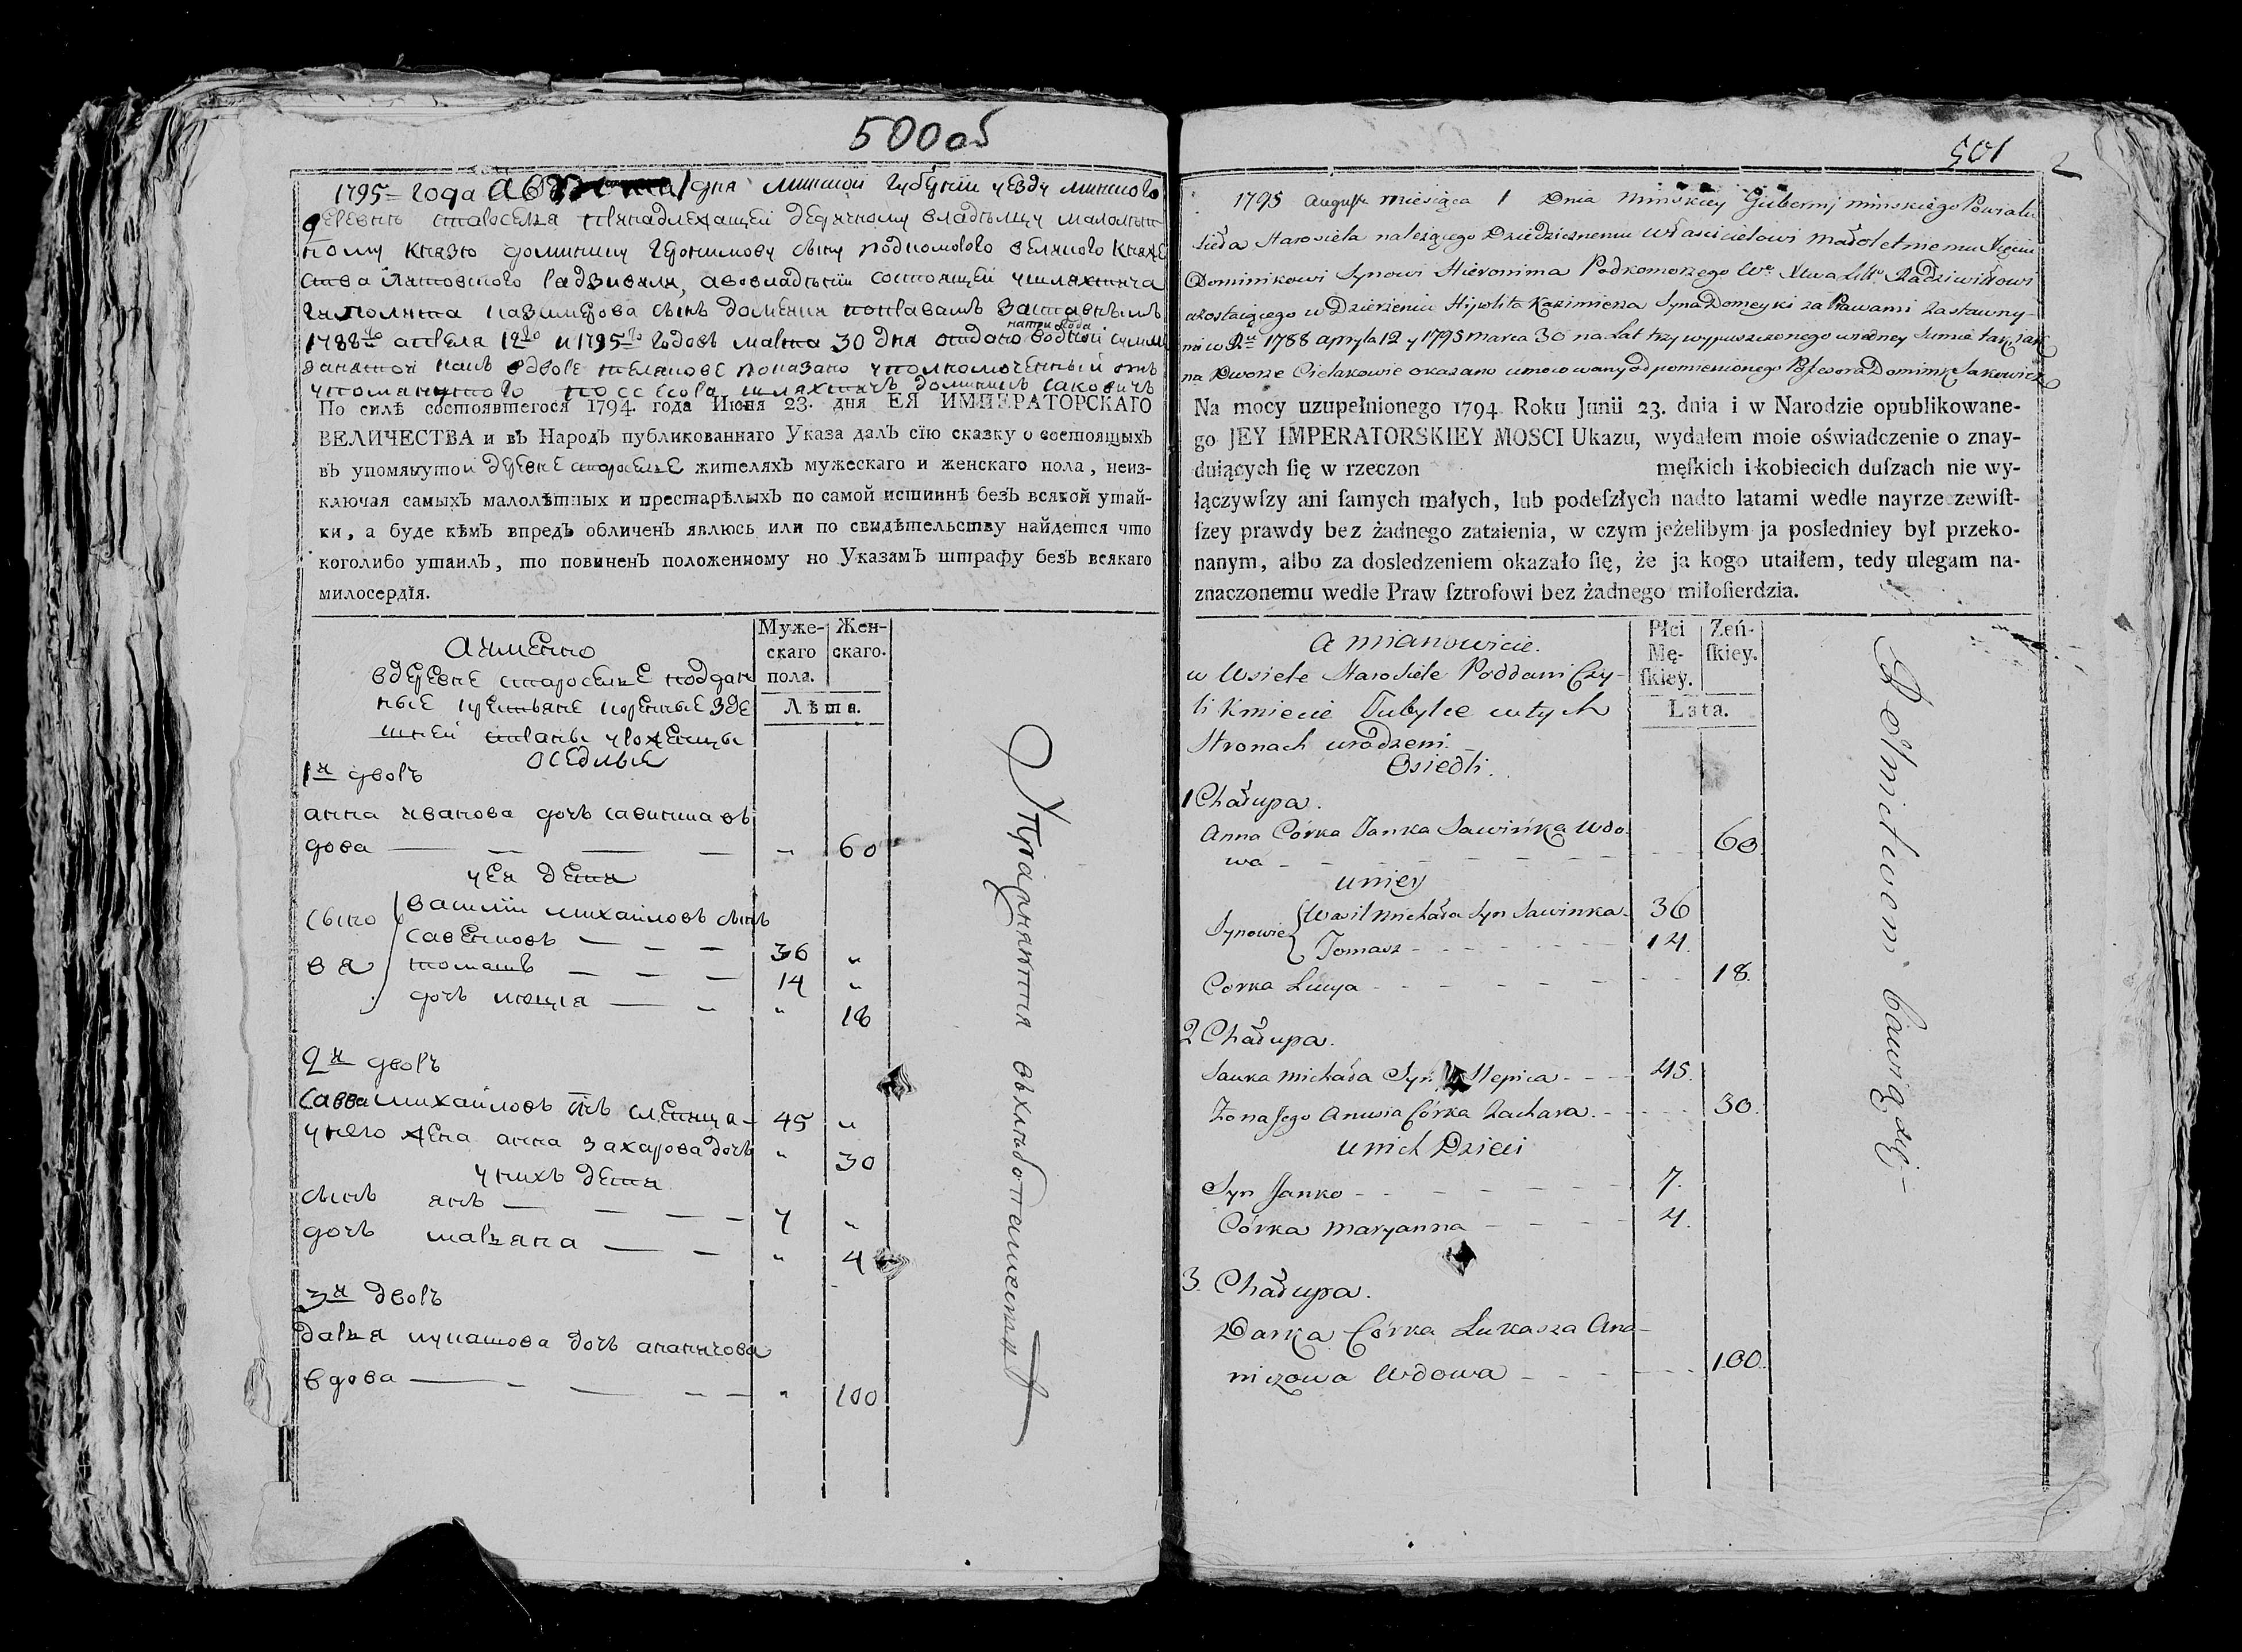 500об
1795 = года августа 1 дня минской губернии уезду минского
деревни староселя принадлежащей дедичному владельцу малолет
ному князю доминику героnимову сыну подкоморого великого княже
ства литовского радзивилл, авовладении состоящей ушляхтича
гиполита казимерова сына домейки поправамъ заставнымъ
1788го апреля 12го и 1795го годовъ марта 30 дня
на три года
отдано водной сумме
данатой какъ вдворе показано уполномоченный отъ
упомянутого посесора шляхтичъ доминикъ саковичъ
По силѣ состоявшегося 1794. года Июня 23. дня ЕЯ ИМПЕРАТОРСКАГО
ВЕЛИЧЕСТВА и въ Народъ публикованнаго Указа далъ сїю сказку о состоящыхъ
въ упомянутой деревне староселе жителяхъ мужескаго и женскаго пола, неиз-
ключая самыхъ малолѣтныхъ и престарѣлыхъ по самой истиннѣ безъ всякой утай-
ки, а буде кѣмъ впредъ обличенъ явлюсь или по свидѣтельству найдется что
коголибо утаилъ, то повиненъ положенному по Указамъ штрафу безъ всякаго
милосердїя.
Аименно
вдеревне староселе поддан
ные крестьяне коренные зде
шней страны уроженцы
оседлые
Муже-
скаго
пола.
Жен-
скаго.
Лѣта.
1й дворъ
анна иванова дочь савинка въ
дова — — — — " 60
уея дети
сыно
вя
василий михайловъ сынъ
савенковъ — — — 36 "
томашъ — — — 14 "
дочь люция — — " 18
2й дворъ
савва михайловъ снъ слепица - 45 "
унего жена анна захарова дочь " 30
унихъ дети
сынъ янъ — — — — 7 "
дочь марьяна — — " 4
3й дворъ
дарья лукашова дочь ананичова
вдова — — — — — " 100
501
2
1795 Augusta miesiąca 1 Dnia Minskiey Gubernij minskiego Powiatu
Sioła Starosiela należącego Dziedzicznemu Właścicielowi małoletniemu Xięciu
Dominikowi Synowi Hieronima Podkomorzego We Xtwa Litt: Radziwiłłowi
a zostaiącego w Dzierżeniu Hipolita Kazimierza Syna Domeyki za Prawami zastawny-
mi w Rku 1788 apryla 12 y 1795 marca 30 na Lat trzy wypuszczonego w iedney Sumie tak jak
na Dworze Cielakowie okazano umocowany od pomienionego Possesora Dominik Sakowicz
Na mocy uzupełnionego 1794 Roku Junii 23. dnia i w Narodzie opublikowane-
go JEY IMPERATORSKIEY MOSCI Ukazu, wydałem moie oświadczenie o znay-
duiących ſię w rzeczon męſkich i kobiecich duſzach nie wy-
łączywſzy ani ſamych małych, lub podeſzłych nadto latami wedle nayrzeczewiſt-
ſzey prawdy bez żadnego zataienia, w czym jeżelibym ja posledniey był przeko-
nanym, albo za dosledzeniem okazało ſię, że ja kogo utaiłem, tedy ulegam na-
znaczonemu wedle Praw ſztrofowi bez żadnego miłoſierdzia.
a mianowicie.
w Wsiele Starosiele Poddani Czy-
li Kmiecie Tubylce w tych
Stronach urodzeni.
Osiedli.
Płci
Mę-
ſkiey.
Zeń-
ſkiey.
Lata.
1 Chałupa.
Anna Córka Janka Sawińka Wdo-
wa - - - - - - 60.
u niey
Synowie
Wasil Michała Syn Sawinka - 36
Tomasz - - - - - 14.
Corka Lucya - - - - - 18.
2 Chałupa.
Sawka Michała Syn Slepica - - 45.
Żona Jego Anusia Córka Zachara - - - 30.
u nich Dzieci
Syn Janko - - - - - 7.
Córka Maryanna - - - 4.
3. Chałupa.
Darka Córka Lukasza Ana-
niczowa Wdowa - - - - - 100.